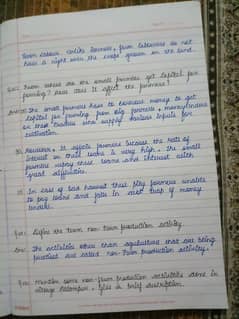 Farm labour unlike farmers, farm labourers do not
have a right over the crops grown on the land.
From where do the small farmers get capital for
farming? How does it affect the farmers?
The small farmers have to borrow money to get
capital for farming from big farmers, money lenders
or the traders who supply various inputs for
cultivation.
However, it affects farmers because the rate of
interest on such loans is very high. The small
farmers repay these loans and interest with
great difficulties.
In case of bad harvest this farmers unable
to pay loans and falls in debt trap of money
lenders.
Define the term non farm production activity.
The activities other than agriculture that are being
practised are called non-farm production activity.
Mention some non-farm production activities done in
village Palampur. Give a brief description.